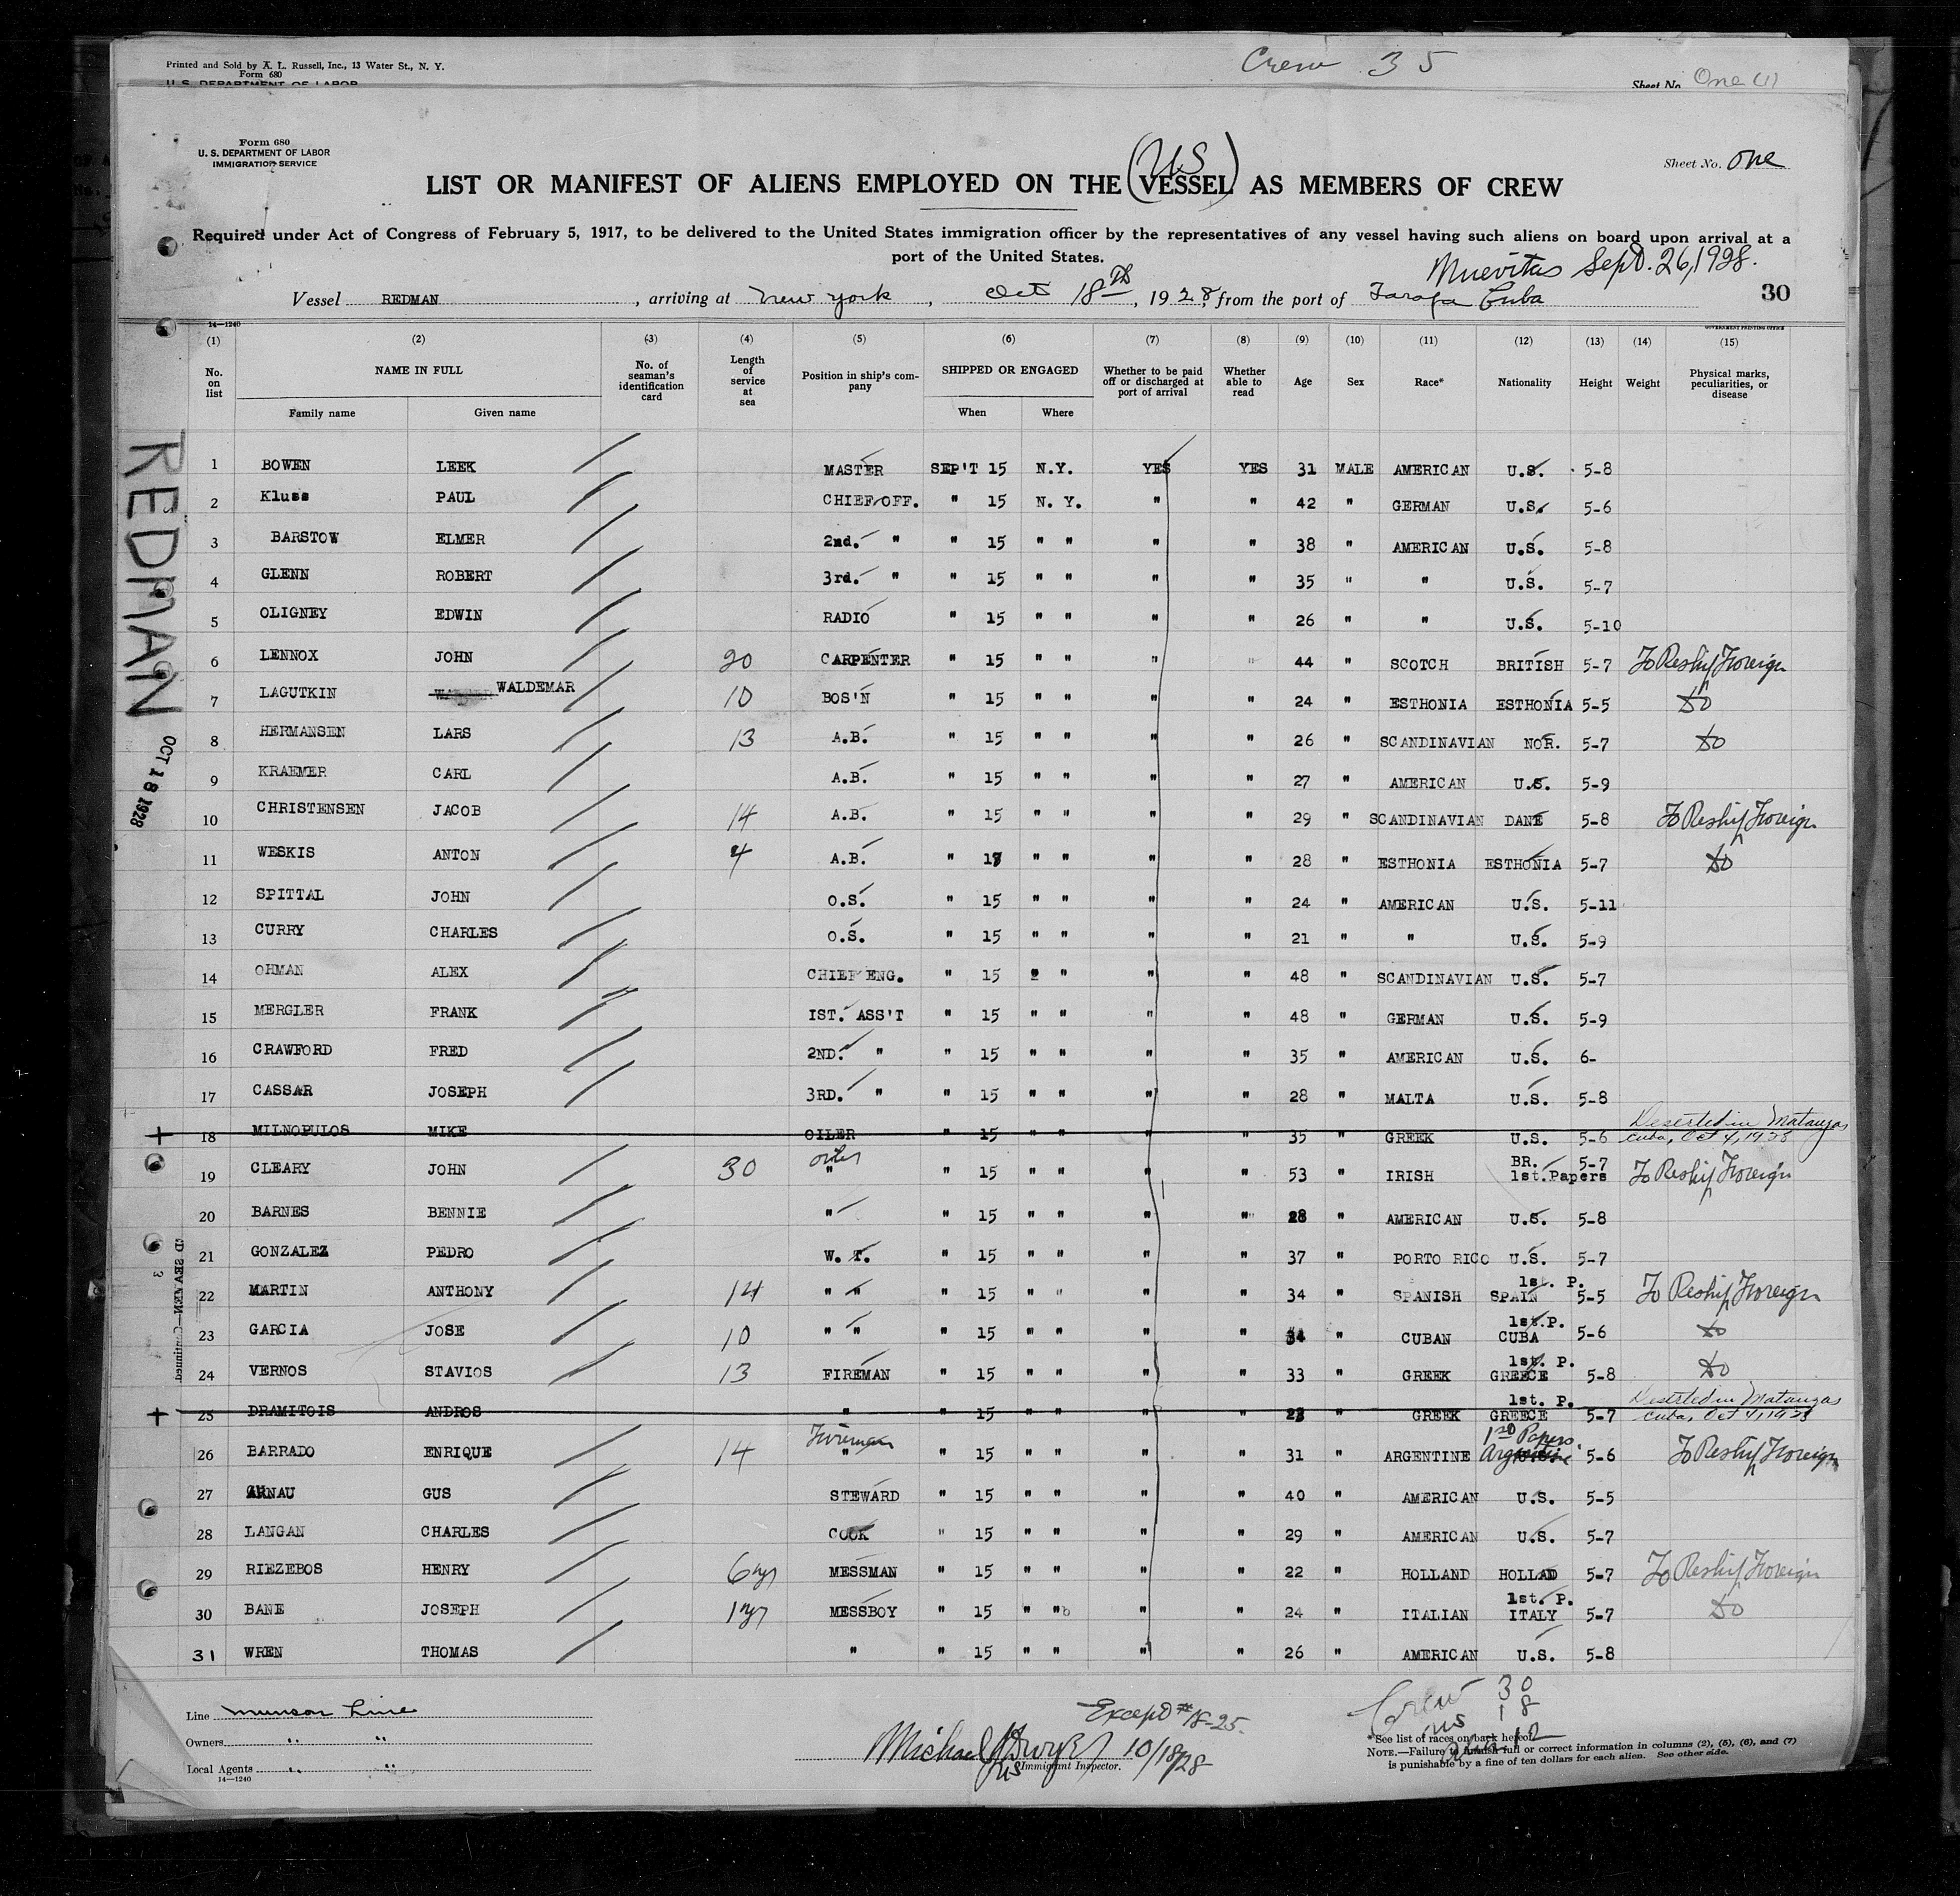 Printed and Sold by A. L. Russell, Inc., 13 Water St., N. Y.
Form 680
U. S. DEPARTMENT OF LABOR
Crew 35
Sheet No. One (1)
Form 680
U. S. DEPARTMENT OF LABOR
IMMIGRATION SERVICE
Sheet No. One
(US)
LIST OR MANIFEST OF ALIENS EMPLOYED ON THE VESSEL AS MEMBERS OF CREW
Required under Act of Congress of February 5, 1917, to be delivered to the United States immigration officer by the representatives of any vessel having such aliens on board upon arrival at a
port of the United States.
Nuevitas Sept. 26, 1928.
Vessel REDMAN, arriving at New York, Oct 18th, 1928, from the port of Tarafa Cuba 30
14—1240 GOVERNMENT PRINTING OFFICE
(1) (2) (3) (4) (5) (6) (7) (8) (9) (10) (11) (12) (13) (14) (15)
No. on list NAME IN FULL No. of seaman's identification card Length of service at sea Position in ship's company SHIPPED OR ENGAGED Whether to be paid off or discharged at port of arrival Whether able to read Age Sex Race* Nationality Height Weight Physical marks, peculiarities, or disease
Family name Given name When Where
REDMAN
OCT 18 1928
1 BOWEN LEEK MASTER SEP'T 15 N.Y. YES YES 31 MALE AMERICAN U.S. 5-8
2 Kluss PAUL CHIEF OFF. " 15 N. Y. " " 42 " GERMAN U.S. 5-6
3 BARSTOW ELMER 2nd. " " 15 " " " " 38 " AMERICAN U.S. 5-8
4 GLENN ROBERT 3rd. " " 15 " " " " 35 " " U.S. 5-7
5 OLIGNEY EDWIN RADIO " 15 " " " " 26 " " U.S. 5-10
6 LENNOX JOHN 20 CARPENTER " 15 " " " " 44 " SCOTCH BRITISH 5-7 To Reship Foreign
7 LAGUTKIN WALDEMAR 10 BOS'N " 15 " " " " 24 " ESTHONIA ESTHONIA 5-5 do
8 HERMANSEN LARS 13 A.B. " 15 " " " " 26 " SCANDINAVIAN NOR. 5-7 do
9 KRAEMER CARL A.B. " 15 " " " " 27 " AMERICAN U.S. 5-9
10 CHRISTENSEN JACOB 14 A.B. " 15 " " " " 29 " SCANDINAVIAN DANE 5-8 To Reship Foreign
11 WESKIS ANTON 4 A.B. " 18 " " " " 28 " ESTHONIA ESTHONIA 5-7 do
12 SPITTAL JOHN O.S. " 15 " " " " 24 " AMERICAN U.S. 5-11
13 CURRY CHARLES O.S. " 15 " " " " 21 " " U.S. 5-9
14 OHMAN ALEX CHIEF ENG. " 15 " " " " 48 " SCANDINAVIAN U.S. 5-7
15 MERGLER FRANK IST. ASS'T " 15 " " " " 48 " GERMAN U.S. 5-9
16 CRAWFORD FRED 2ND. " " 15 " " " " 35 " AMERICAN U.S. 6-
17 CASSAR JOSEPH 3RD. " " 15 " " " " 28 " MALTA U.S. 5-8
18 MILNOPULOS MIKE OILER " 15 " " " " 35 " GREEK U.S. 5-6 Deserted in Matanzas Cuba, Oct 4, 1928
19 CLEARY JOHN 30 oiler " " 15 " " " " 53 " IRISH BR. 1st. Papers 5-7 To Reship Foreign
20 BARNES BENNIE " " 15 " " " " 28 " AMERICAN U.S. 5-8
21 GONZALEZ PEDRO W. T. " 15 " " " " 37 " PORTO RICO U.S. 5-7
22 MARTIN ANTHONY 14 " " " 15 " " " " 34 " SPANISH 1st. P. SPAIN 5-5 To Reship Foreign
23 GARCIA JOSE 10 " " " 15 " " " " 34 " CUBAN 1st.P. CUBA 5-6 do
24 VERNOS STAVIOS 13 FIREMAN " 15 " " " " 33 " GREEK 1st. P. GREECE 5-8 do
25 DRAMITOIS ANDROS " " 15 " " " " 23 " GREEK 1st. P. GREECE 5-7 Deserted in Matanzas Cuba, Oct 4, 1928
26 BARRADO ENRIQUE 14 Fireman " " 15 " " " " 31 " ARGENTINE 1st Papers Argentine 5-6 To Reship Foreign
27 ARNAU GUS STEWARD " 15 " " " " 40 " AMERICAN U.S. 5-5
28 LANGAN CHARLES COOK " 15 " " " " 29 " AMERICAN U.S. 5-7
29 RIEZEBOS HENRY 6 yr MESSMAN " 15 " " " " 22 " HOLLAND HOLLAD 5-7 To Reship Foreign
30 BANE JOSEPH 1 yr MESSBOY " 15 " " " " 24 " ITALIAN 1st. P. ITALY 5-7 do
31 WREN THOMAS " " 15 " " " " 26 " AMERICAN U.S. 5-8
SEAMEN—Continued
3
Line Munson Line
Owners " "
Local Agents " "
14—1240
Except # 18-25.
Michael Dwyer 10/18/28
Immigrant Inspector.
Crew 30
US 18
12
*See list of races on back hereof.
NOTE.—Failure to furnish full or correct information in columns (2), (5), (6), and (7)
is punishable by a fine of ten dollars for each alien. See other side.